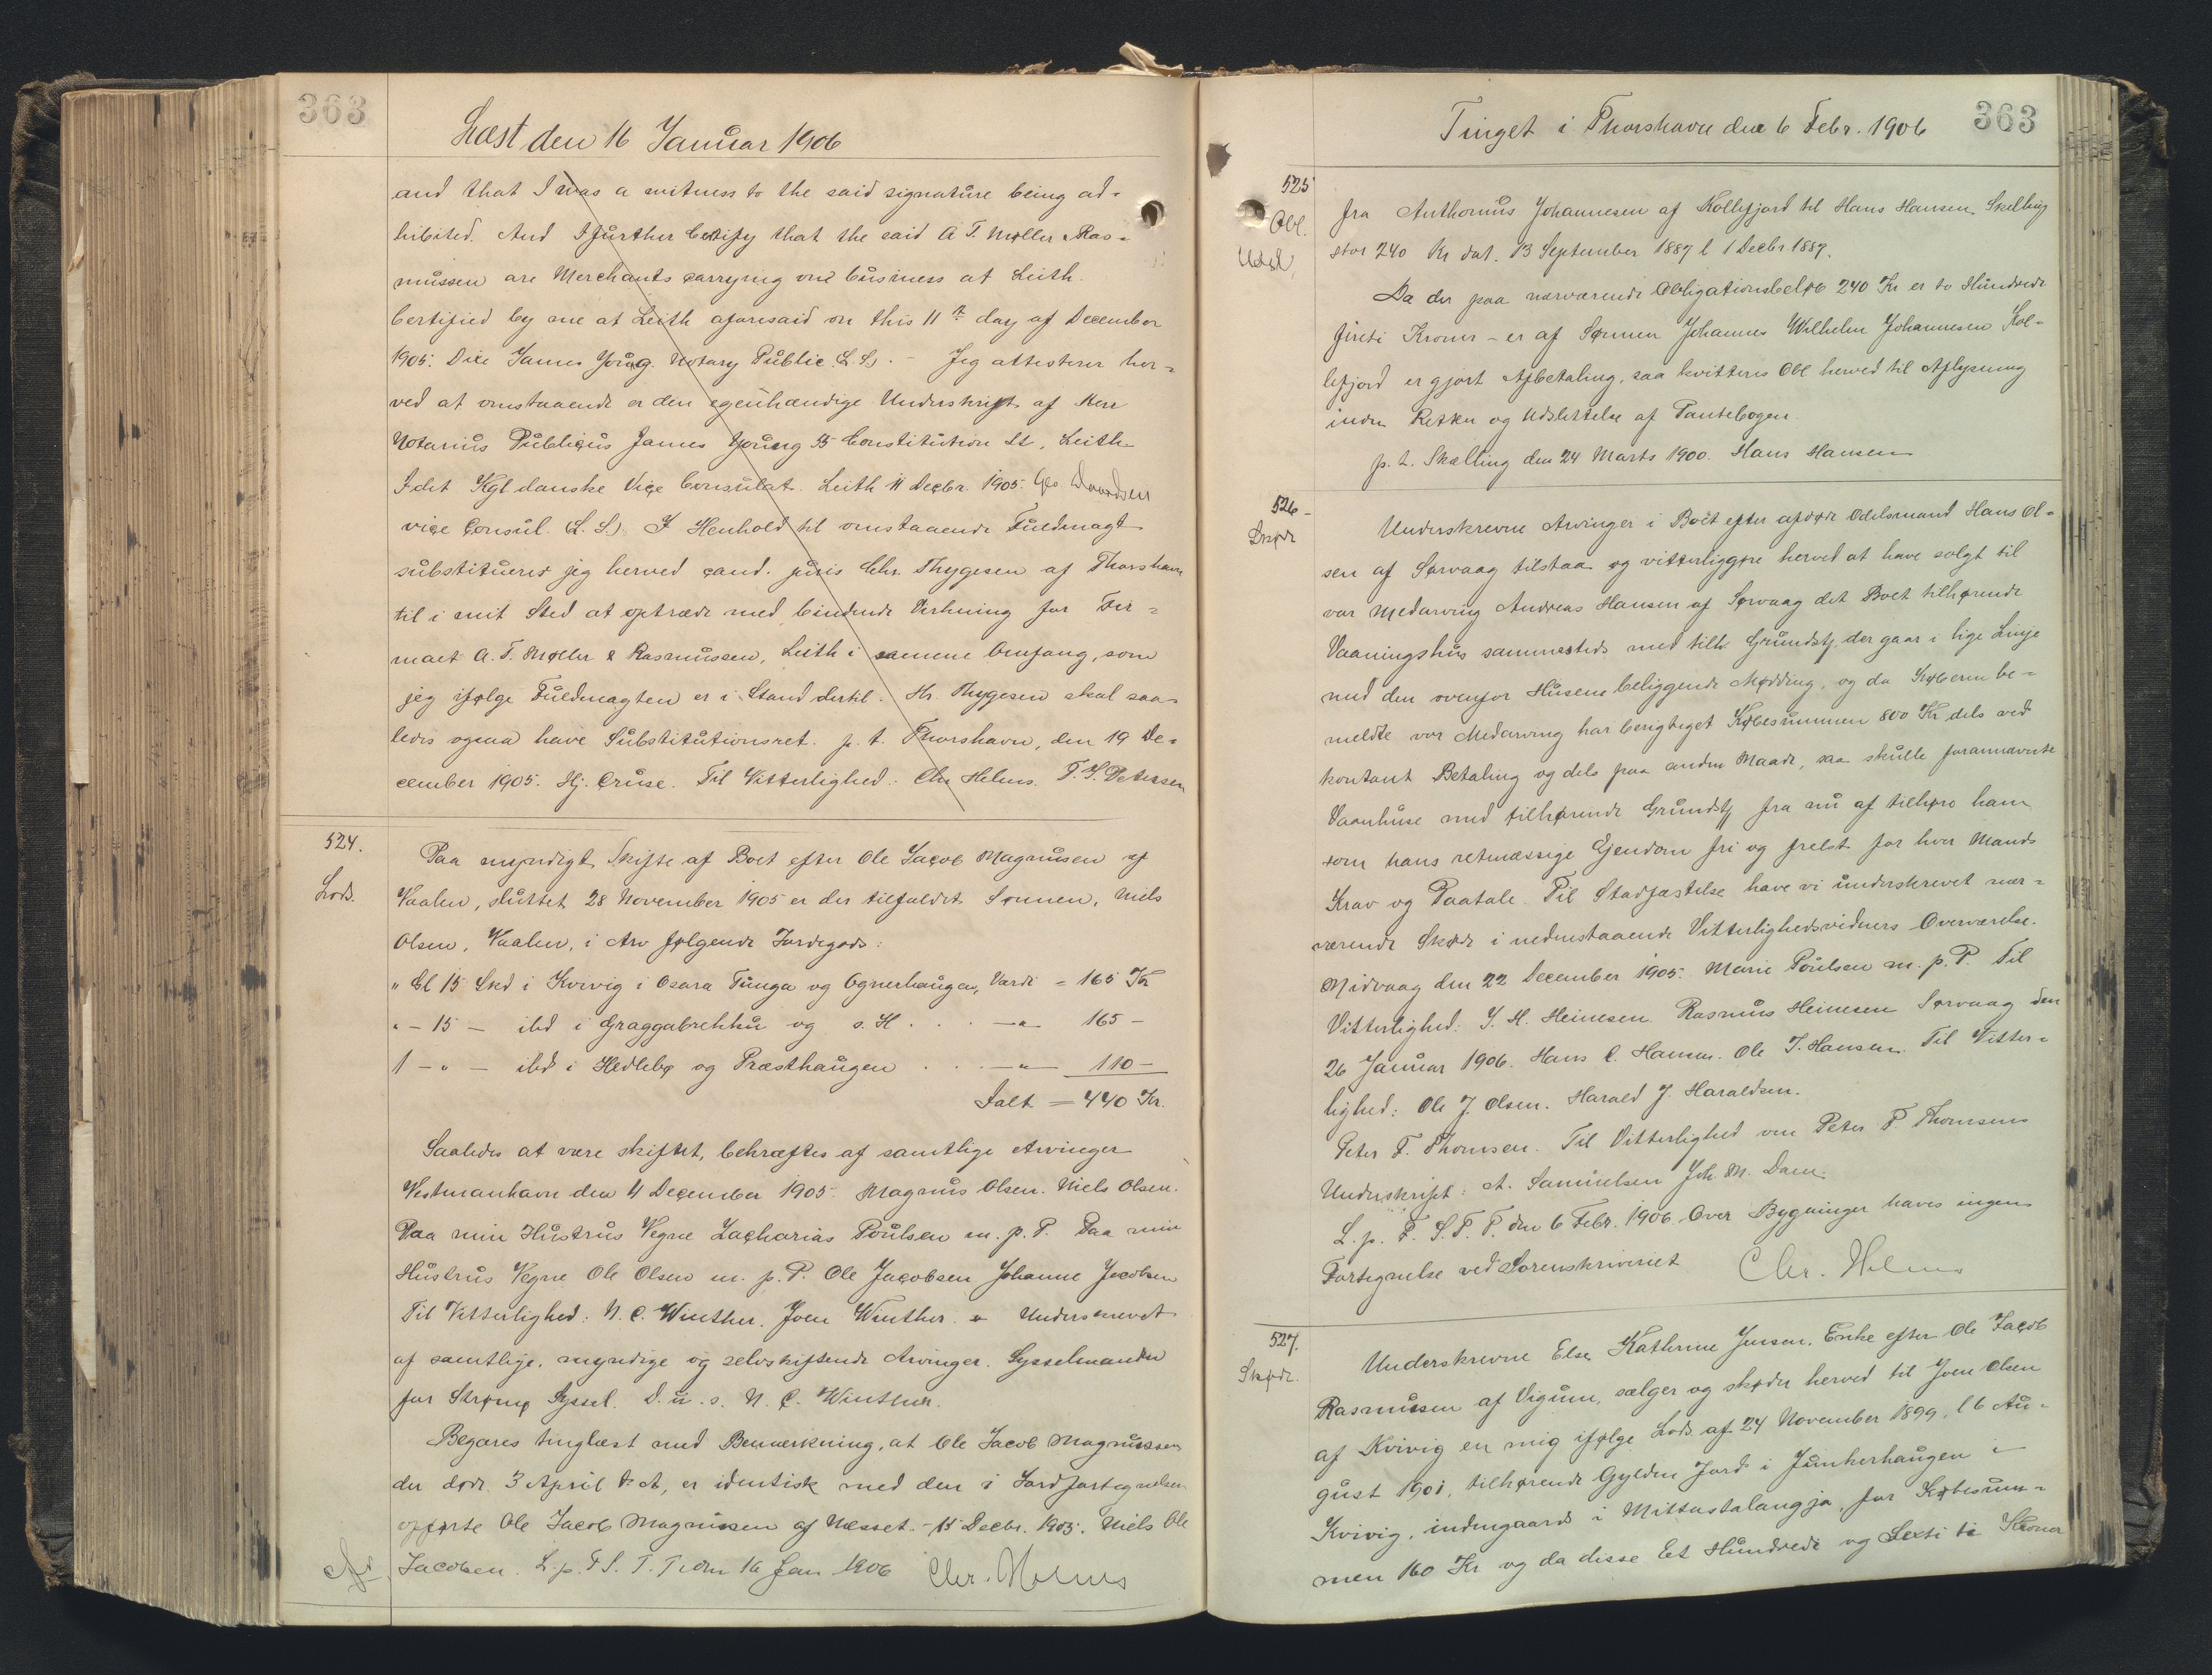 363
Læst den 16 Januar 1906
and that I was a witness to the said signature being ad-
hibited. And I further Certify that the said A. T. Møller & Ras-
mussen are Merchants carrying one business at Leith.
Certified by me at Leith aforesaid on this 11th day of December
1905: Dixe James Young. Notary Public. L. S). - Jeg attesterer her-
ved at omstaaende er den egenhændige Underskrift af Herr
Notarius Publicus James Young 55 Constitution St, Leith
I det Kgl danske Vice Consulat. Leith 11 Decbr. 1905. Geo.
vice Consul. (L. S.). I Henhold til omstaaende Fuldmagt
substituerer jeg herved cand. juris Chr. Thygesen af Thorshavn
til i mit Sted at optræde med bindende Virkning for Fir-
maet A. T. Møller & Rasmussen, Leith i samme Omfang, som
jeg ifølge Fuldmagten er i Stand dertil. Hr. Thygesen skal saa-
ledes ogsaa have Substitutionsret. p. t. Thorshavn, den 19 De-
cember 1905. Hj. Cruse. Til Vitterlighed: Chr Helms. T. S. Petersen
524.
Lods.
Paa myndigt Skifte af Boet efter Ole Jacob Magnusen af
Vaalen, sluttet 28 November 1905 er der tilfaldet Sønnen, Niels
Olsen, Vaalen, i Arv følgende Jordegods:
" Gl 15 Skd i Kvivig i Osara Tunga og Ognerhaugen, Værdi = 165 Kr
" - 15 - ibd i Graggabrekku og s. H . . . -"- 165 -
1 - " - ibd i Hedlebø og Præsthaugen . . . -"- 110 -
Ialt = 440 Kr.
Saaledes at være skiftet, bekræftes af samtlige Arvinger
Westmanhavn den 4 December 1905. Magnus Olsen. Niels Olsen.
Paa min Hustrus Vegne Zacharias Poulsen m. p. P. Paa min
Hustrus Vegne Ole Olsen m. p. P. Ole Jacobsen Johanne Jacobsen
Til Vitterlighed: N. C. Winther. Joen Winther. Underskrevet
af samtlige, myndige og selvskiftende Arvinger. Sysselmanden
for Strømø Syssel. D. u. s. N. C. Winther.
Begæres tinglæst med Bemærkning, at Ole Jacob Magnussen
der døde 3 April d. A, er identisk med den i Jordfortegnelsen
opførte Ole Jacob Magnusen af Næsset. - 15 Decbr. 1905. Niels Ole
Jacobsen. L. p. F S. T. T. den 16 Jan 1906 Chr. Helms
363
Tinget i Thorshavn den 6 Febr. 1906
525
Obl.
Udsl,
fra Anthonius Johannesen af Kollefjord til Hans Hansen Skelling
stor 240 Kr dat. 13 September 1887 l 1 Decbr 1887.
Da der paa nærværende Obligationsbeløb 240 Kr er to Hundrede
fireti Kroner - er af Sønnen Johannes Wilhelm Johannesen Kol-
lefjord er gjort Afbetaling, saa kvitteres Obl herved til Aflysning
inden Retten og Udslettelse af Pantebogen.
p. t. Skælling den 24 Marts 1900. Hans Hansen
526-
Skøde
Underskrevne Arvinger i Boet efter afdøde Odelsmand Hans Ol-
sen af Sørvaag tilstaa og vitterliggøre herved at have solgt til
vor Medarving Andreas Hansen af Sørvaag det Boet tilhørende
Vaaningshus sammesteds med tilh. Grundstj. der gaar i lige Linje
med den ovenfor Husene beliggende Mødding, og da Køberen be-
meldte vor Medarving har berigtiget Købesummen 800 Kr dels ved
kontant Betaling og dels paa anden Maade, saa skulle forannævnte
Vaanhuse med tilhørende Grundstj fra nu af tilhøre ham
som hans retmæssige Ejendom fri og frelst for hver Mands
Krav og Paatale. Til Stadfæstelse have vi underskrevet nær-
værende Skøde i nedenstaaende Vitterlighedsvidners Overværelse.
Midvaag den 22 December 1905. Marie Poulsen m. p. P. Til
Vitterlighed: J. H. Heinesen Rasmus Heinesen Sørvaag den
26 Januar 1906. Hans C. Hansen. Ole J. Hansen. Til Vitter-
lighed: Ole J. Olsen. Harald J. Haraldsen.
Peter F. Thomsen. Til Vitterlighed om Peter F. Thomsens
Underskrift: A. Samuelsen Joh. M. Dam.
L. p. F. S. T. T. den 6 Febr. 1906. Over Bygninger haves ingen
Fortegnelse ved Sorenskriveriet Chr. Helms
527.
Skøde.
Underskrevne Else Kathrine Jensen, Enke efter Ole Jacob
Rasmusen af Vigum, sælger og skøder herved til Joen Olsen
af Kvivig en mig ifølge Lods. af 24 November 1899, l 6 Au-
gust 1901, tilhørende Gylden Jord i Junkerhaugen i
Kvivig, indengaards i Mittastalangja, for Købesum-
men 160 Kr og da disse Et Hundrede og Sexti Kroner